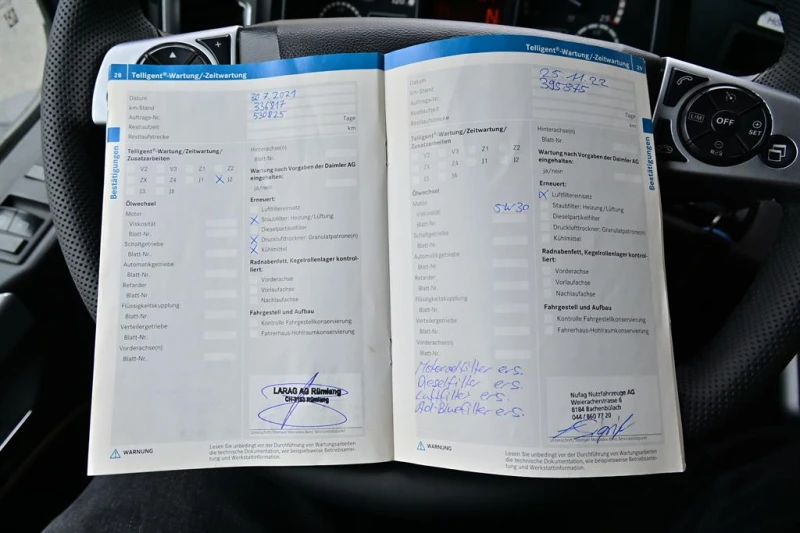 28 Telligent®-Wartung/-Zeitwartung
Datum 30.7.2021
km/Stand 336817
Auftrags-Nr. 530825
Restlaufzeit Tage
Restlaufstrecke km
Telligent®-Wartung/Zeitwartung/
Zusatzarbeiten
V2 V3 Z1 Z2
ZX Z4 J1 X J2
J3 J8
Ölwechsel
Motor
Viskosität
Blatt-Nr.
Schaltgetriebe
Blatt-Nr.
Automatikgetriebe
Blatt-Nr.
Retarder
Blatt-Nr.
Flüssigkeitskupplung
Blatt-Nr.
Verteilergetriebe
Blatt-Nr.
Vorderachse(n)
Blatt-Nr.
Hinterachse(n)
Blatt-Nr.
Wartung nach Vorgaben der Daimler AG
eingehalten:
ja/nein
Erneuert:
Luftfiltereinsatz
X Staubfilter: Heizung/Lüftung
Dieselpartikelfilter
X Drucklufttrockner: Granulatpatrone(n)
X Kühlmittel
Radnabenfett, Kegelrollenlager kontrol-
liert:
Vorderachse
Vorlaufachse
Nachlaufachse
Fahrgestell und Aufbau
Kontrolle Fahrgestellkonservierung
Fahrerhaus-Hohlraumkonservierung
LARAG AG Rümlang
CH-8153 Rümlang
WARNUNG
Lesen Sie unbedingt vor der Durchführung von Wartungsarbeiten
die technische Dokumentation, wie beispielsweise Betriebsanlei-
tung und Werkstattinformation.
Bestätigungen
Telligent®-Wartung/-Zeitwartung 29
Datum 25.11.22
km/Stand 395875
Auftrags-Nr.
Restlaufzeit Tage
Restlaufstrecke km
Telligent®-Wartung/Zeitwartung/
Zusatzarbeiten
V2 V3 Z1 Z2
ZX Z4 J1 J2
J3 J8
Ölwechsel
Motor
Viskosität 5W30
Blatt-Nr.
Schaltgetriebe
Blatt-Nr.
Automatikgetriebe
Blatt-Nr.
Retarder
Blatt-Nr.
Flüssigkeitskupplung
Blatt-Nr.
Verteilergetriebe
Blatt-Nr.
Vorderachse(n)
Blatt-Nr.
Motorenfilter ers.
Dieselfilter ers.
Luftfilter ers.
Ad-Bluefilter ers.
Hinterachse(n)
Blatt-Nr.
Wartung nach Vorgaben der Daimler AG
eingehalten:
ja/nein
Erneuert:
X Luftfiltereinsatz
Staubfilter: Heizung/Lüftung
Dieselpartikelfilter
Drucklufttrockner: Granulatpatrone(n)
Kühlmittel
Radnabenfett, Kegelrollenlager kontrol-
liert:
Vorderachse
Vorlaufachse
Nachlaufachse
Fahrgestell und Aufbau
Kontrolle Fahrgestellkonservierung
Fahrerhaus-Hohlraumkonservierung
Nufag Nutzfahrzeuge AG
Weieracherstrasse 6
8184 Bachenbülach
044 / 860 77 20
WARNUNG
Lesen Sie unbedingt vor der Durchführung von Wartungsarbeiten
die technische Dokumentation, wie beispielsweise Betriebsanlei-
tung und Werkstattinformation.
Bestätigungen
LIM
OFF
SET
N